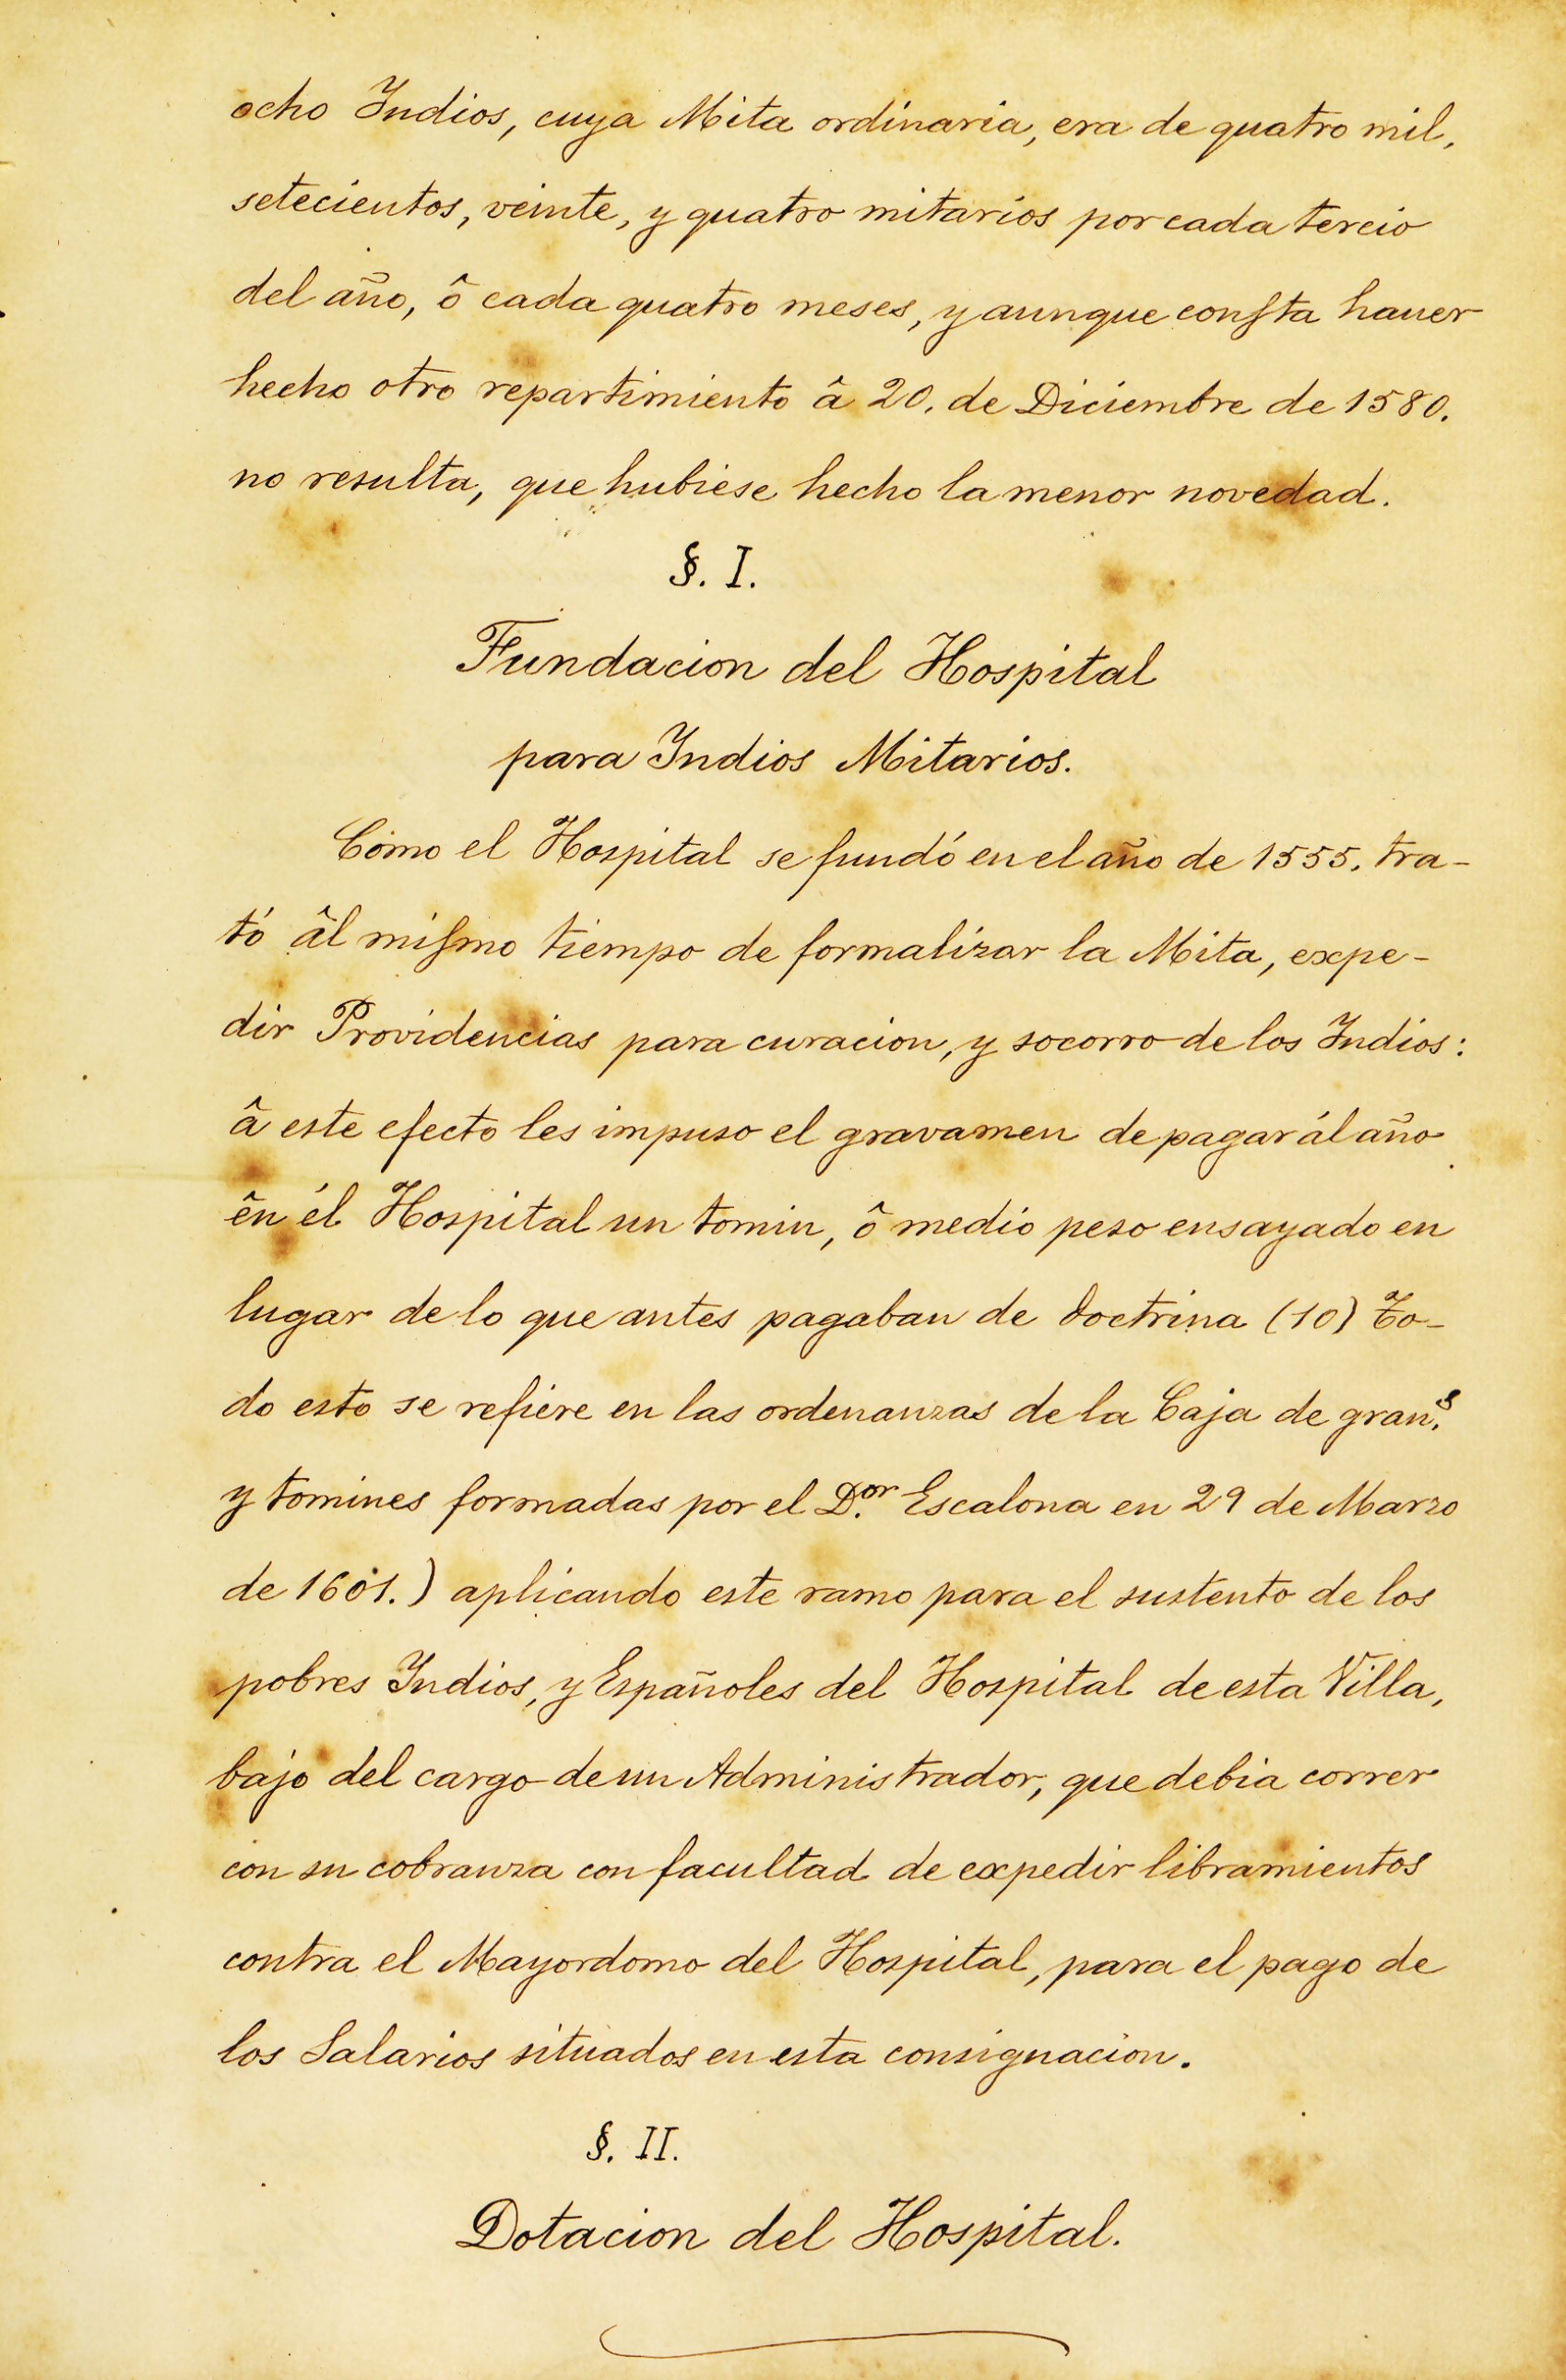 ocho Indios, cuya Mita ordinaria, era de quatro mil,
setecientos, veinte, y quatro mitarios por cada tercio
del año, ô cada quatro meses, y aunque conſta hauer
hecho otro repartimiento â 20. de Diciembre de 1580.
no resulta, que hubiese hecho la menor novedad.
§. I.
Fundacion del Hospital
para Indios Mitarios.
Como el Hospital se fundó en el año de 1555. tra-
tó âl miſmo tiempo de formalizar la Mita, expe-
dir Providencias para curacion, y socorro de los Indios:
â este efecto les impuso el gravamen de pagar ál año
ên él Hospital un tomin, ô medio peso ensayado en
lugar de lo que antes pagaban de doctrina (10) To-
do esto se refiere en las ordenanzas de la Caja de gran.s
y tomines formadas por el D.or Escalona en 29 de Marzo
de 1601.) aplicando este ramo para el sustento de los
pobres Indios, y Españoles del Hospital de esta Villa,
bajo del cargo de un Administrador, que debia correr
con su cobranza con facultad de expedir libramientos
contra el Mayordomo del Hospital, para el pago de
los Salarios situados en esta consignacion.
§. II.
Dotacion del Hospital.